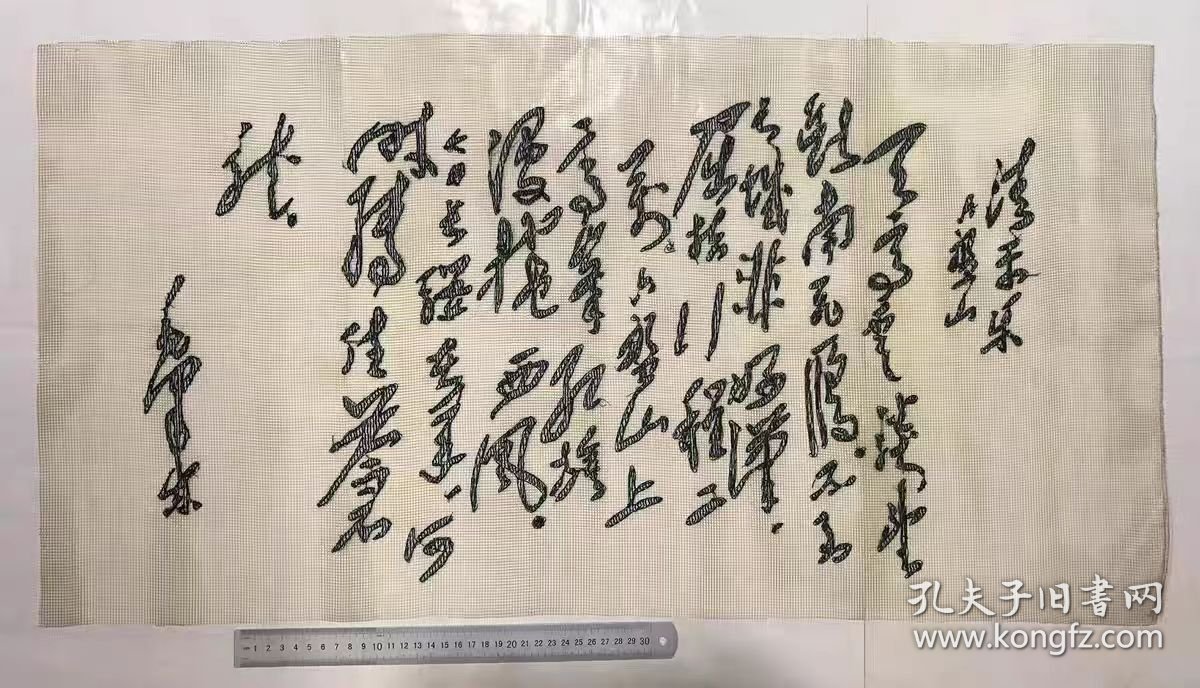 清平乐
六盤山
天高雲淡望
断南飛雁。不到
长城非好漢、
屈指行程二
万。六盤山上
高峯红旗
漫捲西風。
今日长缨在手、何
時縛住蒼
龙。
毛泽东
1 2 3 4 5 6 7 8 9 10 11 12 13 14 15 16 17 18 19 20 21 22 23 24 25 26 27 28 29 30
孔夫子旧書网
www.kongfz.com